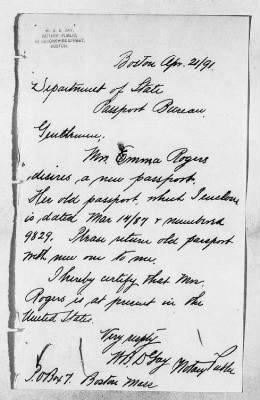 W. H. D. GAY,
NOTARY PUBLIC,
BOSTON.
Boston Apr. 21/91.
Department of State
Passport Bureau.
Gentlemen.
Mrs. Emma Rogers
desires a new passport.
Her old passport, which I enclose
is dated Mar 14/87 & numbered
9829. Please return old passport
with new one to me.
I hereby certify that Mrs.
Rogers is at present in the
United States.
Very resptly
W. H. D. Gay Notary Public
P.O Box 7. Boston Mass